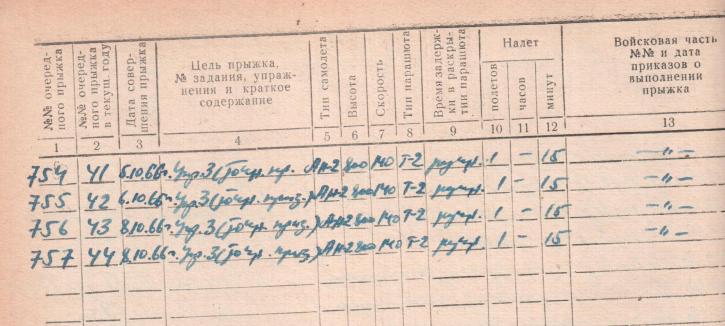 №№ очеред-
ного прыжка
№№ очеред-
ного прыжка
в текущ. году
Дата совер-
шения прыжка
Цель прыжка,
№ задания, упраж-
нения и краткое
содержание
Тип самолета
Высота
Скорость
Тип парашюта
Время задерж-
ки в раскры-
тии парашюта
Налет
полетов
часов
минут
Войсковая часть
№№ и дата
приказов о
выполнении
прыжка
1 2 3 4 5 6 7 8 9 10 11 12 13
754 41 6.10.66г. Упр. 3 (точн. пр. Ан-2 800 140 Т-2 1 — 15 —"—
755 42 6.10.66г. Упр. 3 (точн. призд.) Ан-2 800 140 Т-2 1 — 15 —"—
756 43 8.10.66г. Упр. 3 (точн. призд.) Ан-2 800 140 Т-2 1 — 15 —"—
757 44 8.10.66г. Упр. 3 (точн. призд.) Ан-2 800 140 Т-2 1 - 15 —"—